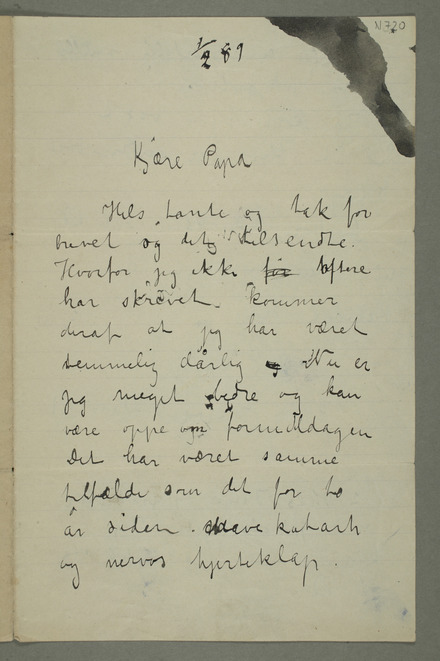 N 720
1/2 89
Kjære Papa
Hils tante og tak for
brevet og det tilsendte.
Hvorfor jeg ikke oftere
har skrevet kommer
deraf at jeg har været
temmelig dårlig Nu er
jeg meget bedre og kan
være oppe om formiddagen
Det har været samme
tilfælde som det for to
år siden. katarh
og nervøs hjerteklap.